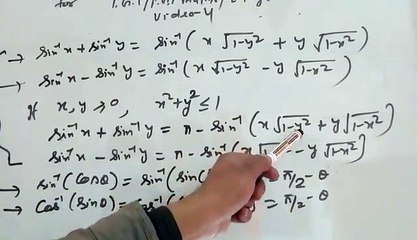 for
video-4
→ sin⁻¹x + sin⁻¹y = sin⁻¹(x√1-y² + y√1-x²)
→ sin⁻¹x - sin⁻¹y = sin⁻¹(x√1-y² - y√1-x²)
If x, y ≥ 0, x²+y² ≤ 1
sin⁻¹x + sin⁻¹y = π - sin⁻¹(x√1-y² + y√1-x²)
sin⁻¹x - sin⁻¹y = π - sin⁻¹(x - y√1-x²)
→ sin⁻¹(cosθ) = sin⁻¹(sin( π/2 - θ
→ cos⁻¹(sinθ) = = π/2 - θ